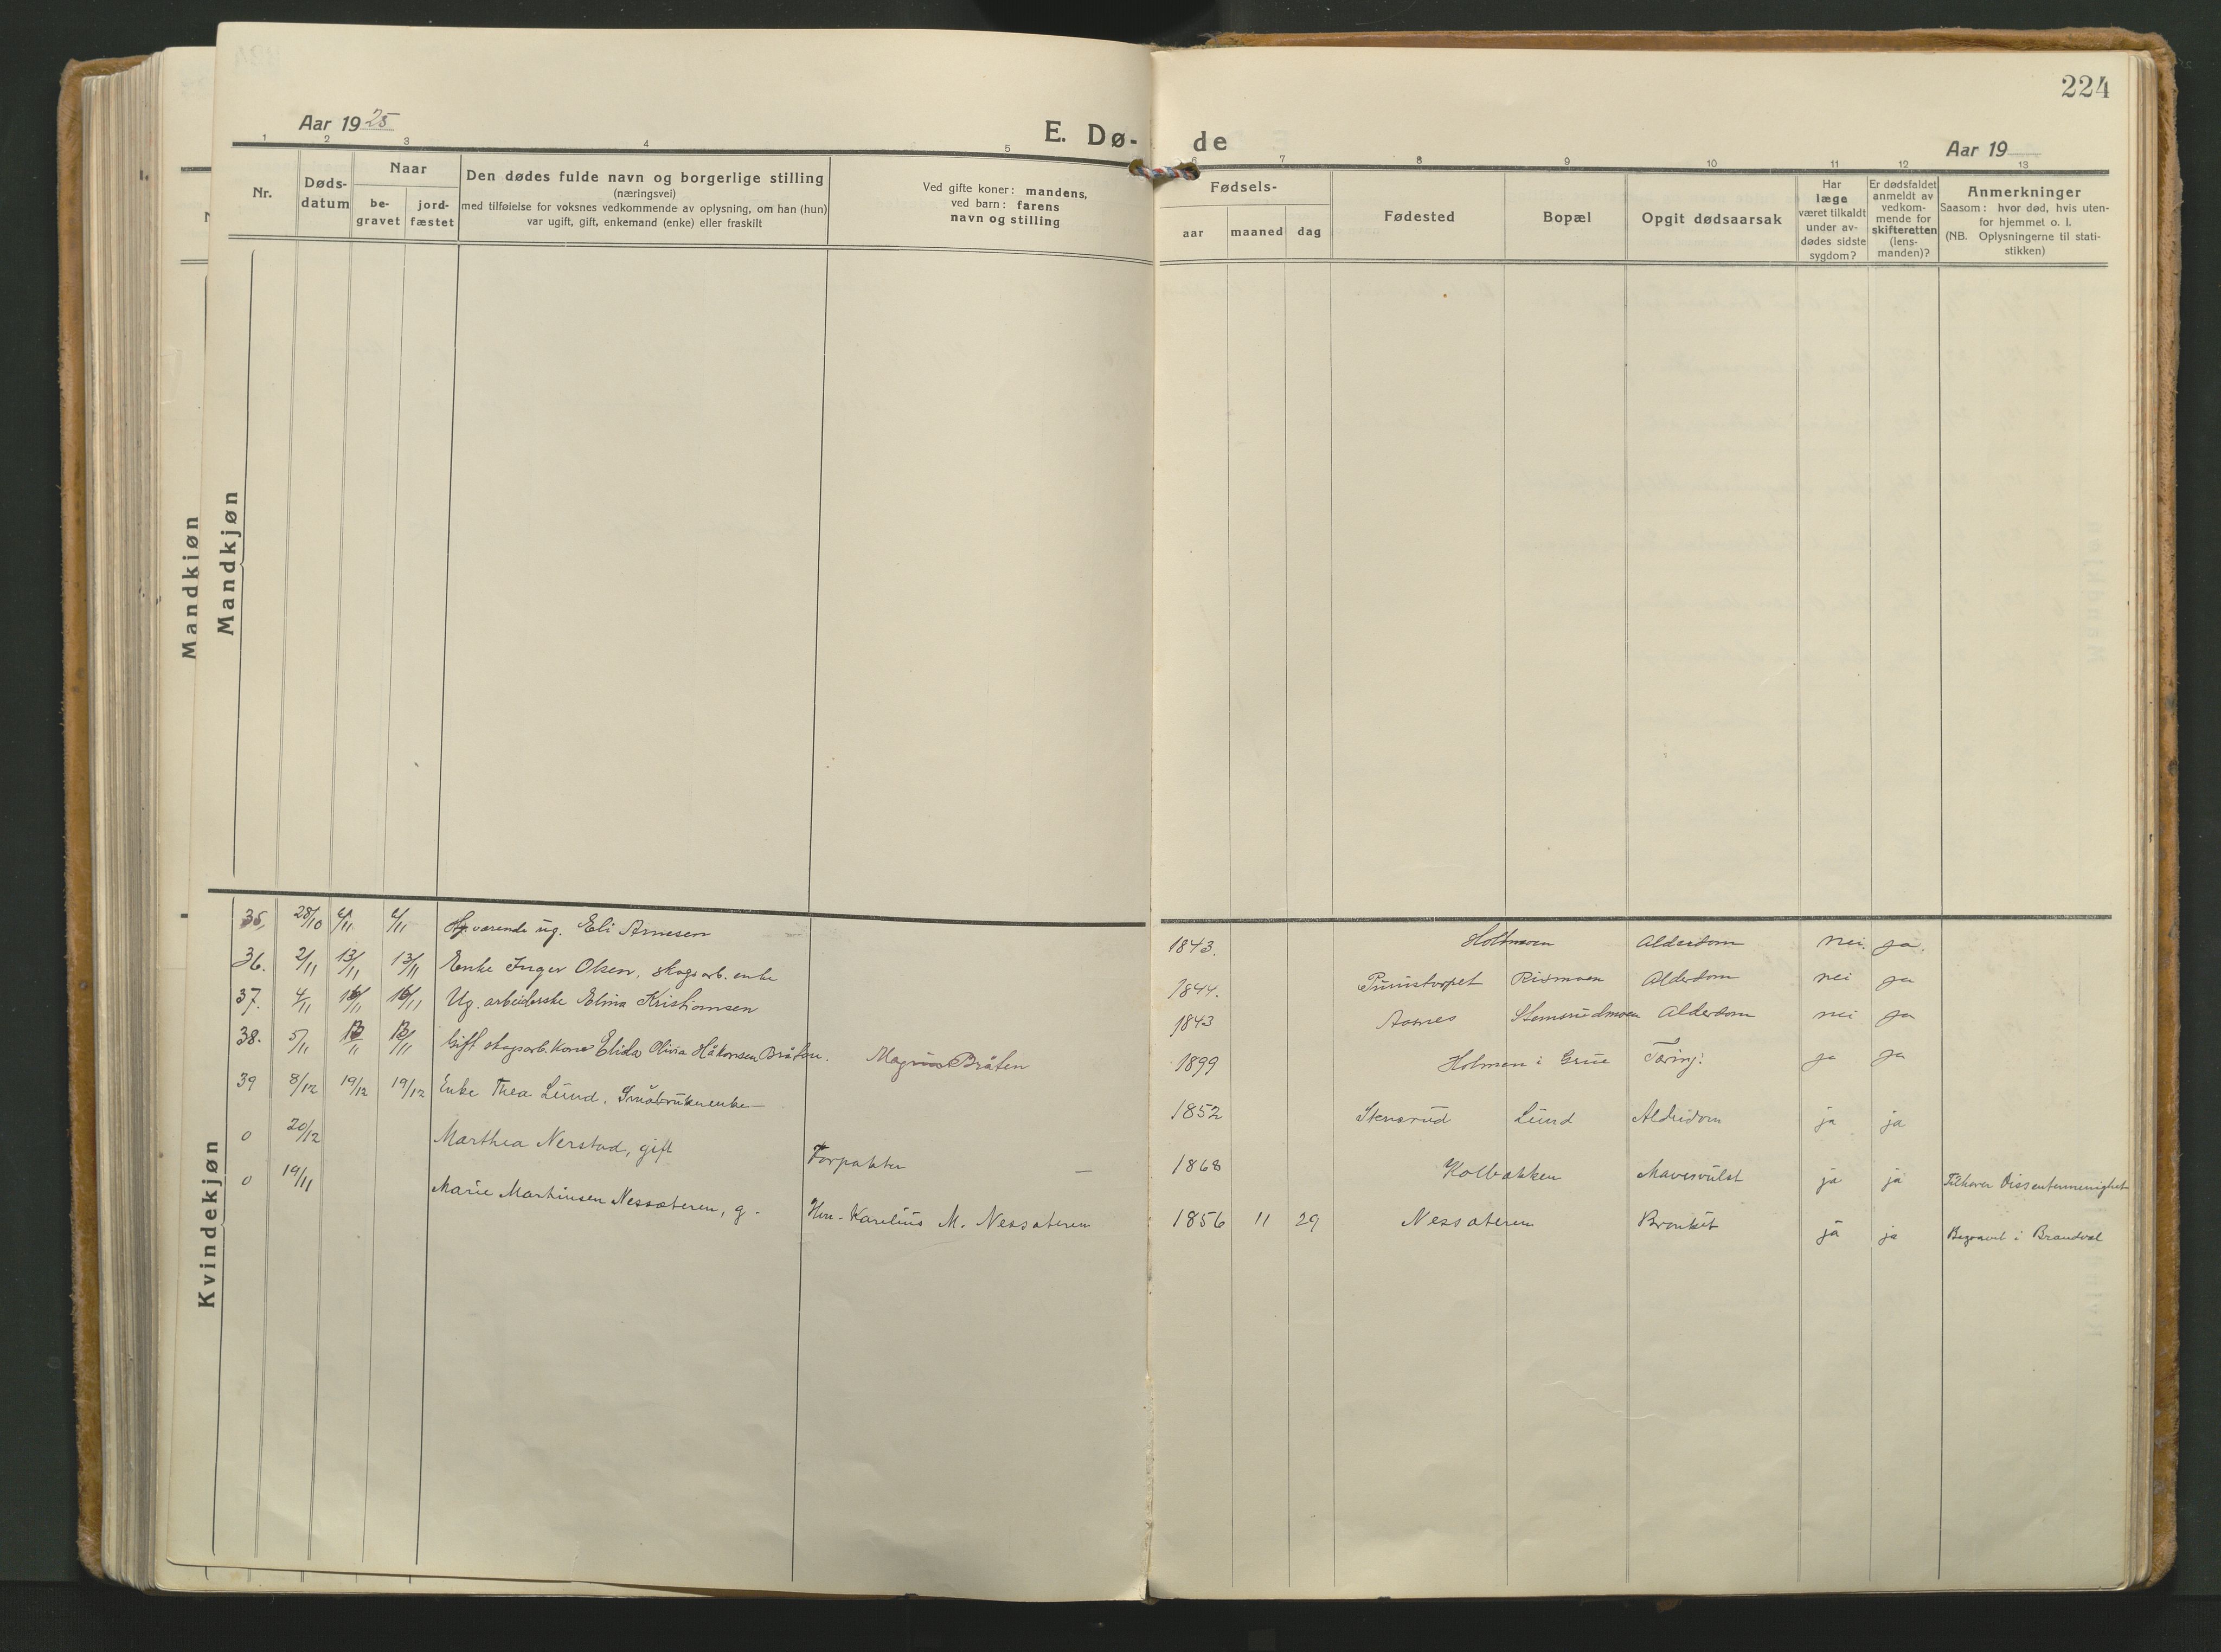 224
Aar 1925
E. Dø-
de
Aar 19
1 2 3 4 5 6 7 8 9 10 11 12 13
Nr.
Døds-
datum
Naar
be-
gravet
jord-
fæstet
Den dødes fulde navn og borgerlige stilling
(næringsvei)
med tilføielse for voksnes vedkommende av oplysning, om han (hun)
var ugift, gift, enkemand (enke) eller fraskilt
Ved gifte koner: mandens,
ved barn: farens
navn og stilling
Fødsels-
aar maaned dag
Fødested
Bopæl
Opgit dødsaarsak
Har
læge
været tilkaldt
under av-
dødes sidste
sygdom?
Er dødsfaldet
anmeldt av
vedkom-
mende for
skifteretten
(lens-
manden)?
Anmerkninger
Saasom: hvor død, hvis uten-
for hjemmet o. l.
(NB. Oplysningerne til stati-
stikken)
Mandkjøn
Mandkjøn
Kvindekjøn
35. 28/10 Hj.værende ug. Eli Arnesen 1843. Holtmoen Alderdom nei. ja.
36. 2/11 13/11 13/11 Enke Inger Olsen, skogsarb. enke 1844. Rismoen Alderdom nei ja
37. 4/11 Ug. arbeiderske Elina Kristiansen 1843 Aasnes Stemsrudmoen Alderdom nei ja
38. 5/11 Gift skogsarb. kone Elida Olivia Håkonsen Bråten. Magnus Bråten 1899 Holmen i Grue Tæring. ja ja
39 8/12 19/12 19/12 Enke Thea Lund. Småbrukerenke 1852 Stensrud Lund Alderdom ja ja
0 20/12 Marthea Nerstad, gift Forpakter — 1868 Kolbakken Mavesvulst ja ja Tilhører Dissentermenighet
0 19/11 Marie Martinsen Nessæteren, g. Karelius M. Nessæteren 1856 11 29 Nessæteren Bronkit ja ja Begravet i Brandval